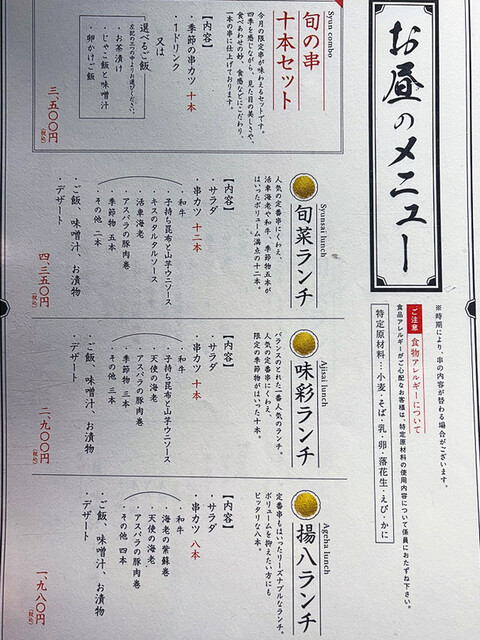 お昼のメニュー
※時期により、串の内容が替わる場合がございます。
ご注意 食物アレルギーについて
食品アレルギーがご心配なお客様は、特定原材料の使用内容について係員におたずね下さい。
特定原材料…小麦・そば・乳・卵・落花生・えび・かに
Syun combo
旬の串
十本セット
今月の限定串が味わえるセットです。
四季を感じながら、見た目の美しさや、
食べあわせの妙、食感などにこだわり、
一本の串に仕上げております。
【内容】
・季節の串カツ 十本
・1ドリンク
又は
選べるご飯
左記の三つの中よりお選びください。
・お茶漬け
・じゃこ飯と味噌汁
・卵かけご飯
三、五〇〇円(税込)
Syunsai lunch
旬菜ランチ
人気の定番串にくわえ、
活車海老や和牛、季節物五本が
はいったボリューム満点の十二本。
【内容】
・サラダ
・串カツ 十二本
和牛
・子持ち昆布と山芋ウニソース
・キスのタルタルソース
活車海老
・アスパラの豚肉巻
季節物 五本
その他 二本
・ご飯、味噌汁、お漬物
・デザート
四、三五〇円(税込)
Ajisai lunch
味彩ランチ
バランスのとれた一番人気のランチ。
人気の定番串にくわえ、
限定の季節物がはいった十本。
【内容】
・サラダ
・串カツ 十本
和牛
子持ち昆布と山芋ウニソース
・天使の海老
・アスパラの豚肉巻
季節物 三本
・その他 三本
・ご飯、味噌汁、お漬物
・デザート
二、九〇〇円(税込)
Ageha lunch
揚八ランチ
定番串もはいったリーズナブルなランチ。
ボリュームを抑えたい方にも
ピッタリな八本。
【内容】
・サラダ
・串カツ 八本
・和牛
海老の紫蘇巻
・天使の海老
・アスパラの豚肉巻
その他 四本
・ご飯、味噌汁、お漬物
・デザート
一、九八〇円(税込)